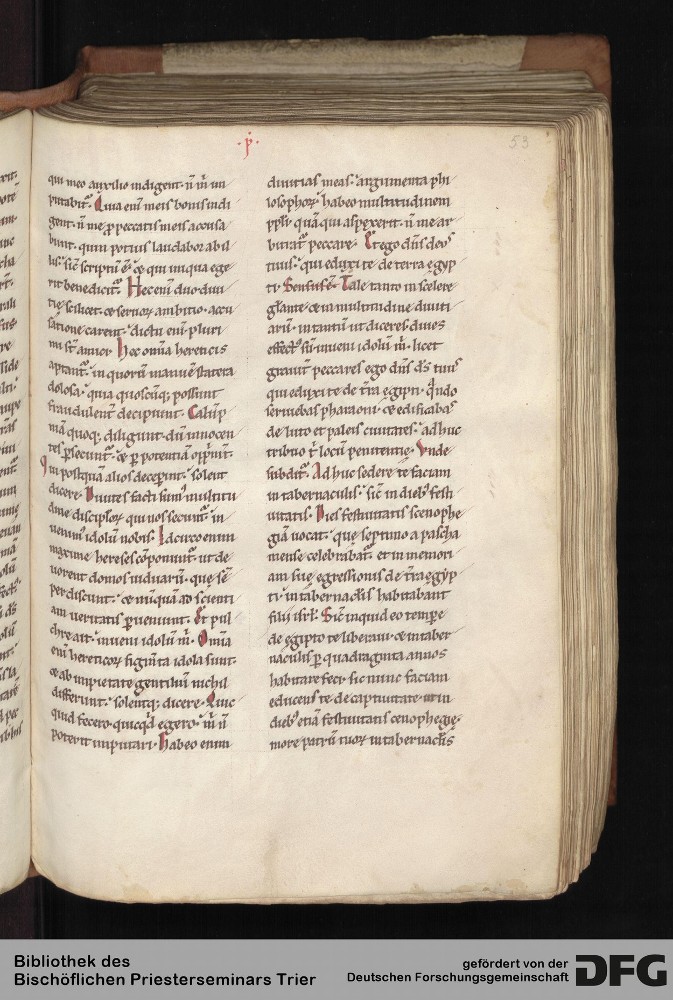 ·p̄·
53
qui meo auxilio indigent. n̄ m̄ im
putabit̄. Quia enī meis bonis indi
gent. n̄ me ꝓ peccatis meis accusa
bunt. quin potius laudabor ab il
lis. sic̄ scriptū ē. ꝙ qui iniqua ege
rit benedicit̄. Hec enī duo diui
tię scilicet ⁊ seruoꝝ ambitio. accu
satione carent. dictū enī. pluri
mi st̄ amici. Hoc om̄ia hereticis
aptant̄. in quorū manu ē statera
dolosa. qua quoscūq; possunt
fraudulent̄ decipiunt. Calūp
niā quoq; diligunt. dū innocen
tes ꝑsecunt̄. ⁊ ꝑ potentiā opp̄mt̄.
Qui postquā alios decepint̄. solent
dicere. Diuites facti sum᷒ multitu
dine discipl̄oꝝ qui nos secunt̄. in
uenim᷒ idolū nobis. Idcirco enim
maxime hereses cōponunt̄. ut de
uorent domos uiduarū. quę sē
per discunt. ⁊ nūquā ad scienti
am ueritatis ꝑueniunt. Et pul
chre ait. inueni idolū m̄. Om̄ia
enī hereticoꝝ figm̄ta idola sunt.
⁊ ab impietate gentiliū nichil
differunt. solentq; dicere. Quic
quid fecero. quicqd̄ egero. m̄ n̄
poterit imputari. Habeo enim
diuitias meas. argumenta phi
losophoꝝ. habeo multitudinem
ppl̄i. quā qui aspexerit. n̄ me ar
bitrat̄ peccare. Et ego dn̄s deus
tuus. qui eduxi te de terra egyp
ti. Sensus ē. Tale tanto in scelere
gl̄ante ⁊ in multitudine diuiti
arū. in tantū ut diceres. diues
effect᷒ sū. inueni idolū m̄. licet
grauit̄ peccares ego dn̄s d̄s tuus
qui eduxi te de t̄ra egipti. qn̄do
seruiebas pharaoni. ⁊ edificabas
de luto et paleis ciuitates. adhuc
tribuo t̄ locū penitentię. Vnde
subdit̄. Adhuc sedere te faciam
in tabernaculis. sic̄ in dieb᷒ festi
uitatis. Dies festiuitatis scenophe
giam uocat. quę septimo a pascha
mense celebrabat̄. et in memori
am suę egressionis de t̄ra egyp
ti. in tabernaclīs habitabant
filii isrl̄. Sic̄ inquid eo tempore
de egipto te liberaui. ⁊ in taber
naculis ꝑ quadraginta annos
habitare feci. sic nunc faciam
educens te de captiuitate. ut in
dieb᷒ etiā festiuitatis cenophegię.
more patrū tuoꝝ in tabernaclīs
Bibliothek des
Bischöflichen Priesterseminars Trier
gefördert von der
Deutschen Forschungsgemeinschaft
DFG